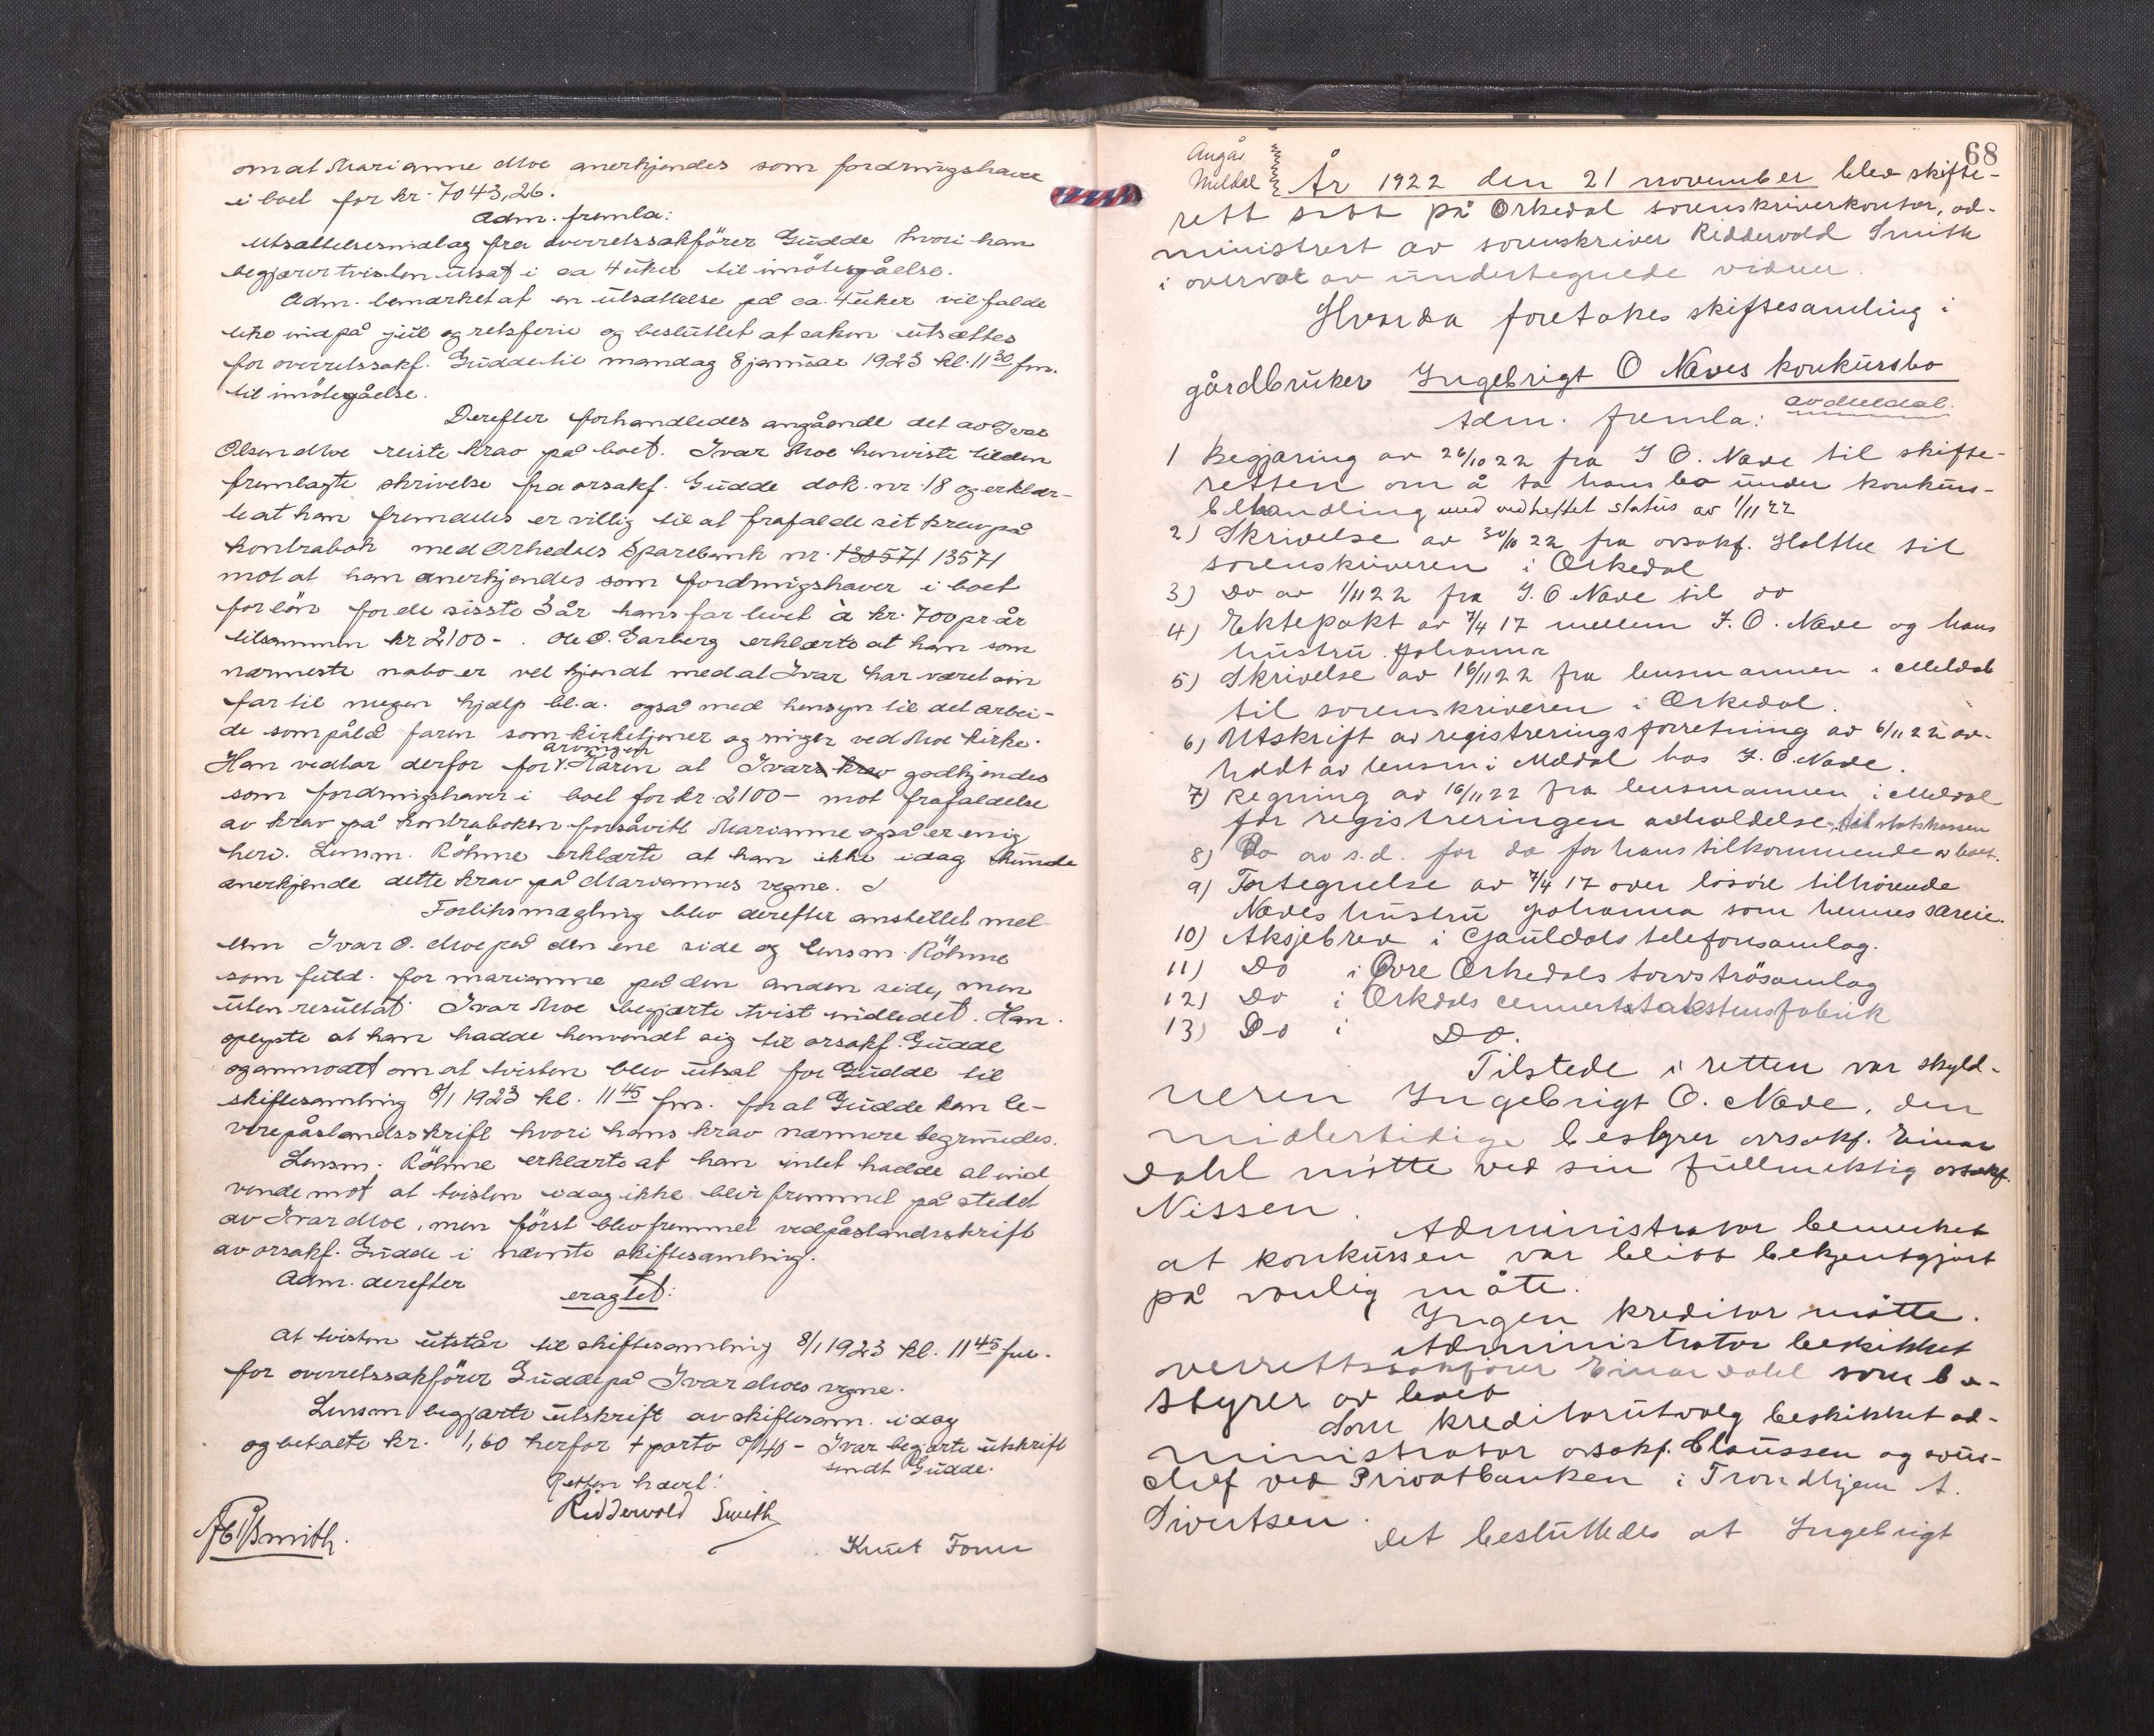 om at Marianne Moe anerkjendes som fordringshaver
i boet for kr. 7043,26.
Adm. fremla:
Utsættelsesindlag fra overretssakförer Gudde hvori han
begjærer tvisten utsat i ca 4 uker til imötegåelse.
Adm. bemærket at en utsættelse på ca. 4 uker vil falde
like ind på jul og retsferie og besluttet at saken utsættes
for overretssakf. Gudde til mandag 8 januar 1923 kl. 11 30 fm.
til imötegåelse.
Derefter forhandledes angående det av Ivar
Olsen Moe reiste krav på boet. Ivar Moe henviste til den
fremlagte skrivelse fra orsakf. Gudde dok. nr. 18 og erklær-
te at han fremdeles er villig til at frafalde sit krav på
kontrabok med Orkedals Sparebank nr. 130571 13571
mot at han anerkjendes som fordringshaver i boet
for lön for de sisste 3 år hans far levet à kr. 700 pr år
tilsammen kr 2100 - . Ole O. Garberg erklærte at han som
nærmeste nabo er vel kjendt med at Ivar har været sin
far til megen hjælp bl.a. også med hensyn til det arbei-
de som pålå faren som kirketjener og ringer ved Moe kirke.
arvingen
Han vedtar derfor for Karen at Ivars krav godkjendes
som fordringshaver i boet for kr. 2100 - mot frafaldelse
av krav på kontraboken forsåvitt Marianne også er enig
heri. Lensm. Röhme erklærte at han ikke idag kunde
anerkjende dette krav på Mariannes vegne.
Forliksmægling blev derefter anstillet mel-
lem Ivar O. Moe på den ene side og lensm. Röhme
som fuld. for Marianne på den anden side, men
uten resultat. Ivar Moe begjærte tvist indledet. Han
oplyste at han hadde henvendt sig til orsakf. Gudde
og anmodet om at tvisten blev utsat for Gudde til
skiftesamling 8/1 1923 kl. 11 45 fm. for at Gudde kan le-
vere påstandsskrift hvori hans krav nærmere begrundes.
Lensm. Röhme erklærte at han intet hadde at ind
vende mot at tvisten idag ikke blir fremmet på stedet
av Ivar Moe, men först blev fremmet ved påstandsskrift
av orsakf. Gudde i nævnte skiftesamling.
Adm. derefter
eragtet:
At tvisten utstår til skiftesamling 8/1 1923 kl. 11 45 fm.
for overretssakförer Gudde på Ivar Moes vegne.
Lensm begjærte utskrift av skiftesam. idag
og betalte kr. 1,60 herfor + porto 0/40 - Ivar begjærte utskrift
sendt Gudde.
Retten hævet:
Ridderwold Smith
Smith.
Knut Fonn
68
Angår
Meldal
År 1922 den 21 november blev skifte-
rett satt på Orkedal sorenskriverkontor, ad-
ministrert av sorenskriver Ridderwold Smith
i overvær av undertegnede vidner.
Hvorda foretokes skiftesamling i
gårdbruker Ingebrigt O Naves konkursbo
av Meldal.
Adm. fremla:
1 Begjæring av 26/10 22 fra I O. Nave til skifte-
retten om å ta hans bo under konkurs-
behandling med vedheftet status av 1/11 22
2) Skrivelse av 30/10 22 fra orsakf. Holthe til
sorenskriveren i Orkedal
3) Do av 1/11 22 fra I. O Nave til do
4) Ektepakt av 7/4 17 mellem I. O. Nave og hans
hustru Johanna
5) Skrivelse av 16/11 22 fra lensmannen i Meldal
til sorenskriveren i Orkedal.
6) Utskrift av registreringsforretning av 6/11 22 av-
holdt av lensm i Meldal hos I. O. Nave.
7) Regning av 16/11 22 fra lensmannen i Meldal
for registreringen avholdelse, til statskassen
8) Do av s.d. for do for hans tilkommende av boet.
9) Fortegnelse av 7/4 17 over lösöre tilhörende
Naves hustru Johanna som hennes særeie.
10) Aksjebrev i Gauldals telefonsamlag.
11) Do i Øvre Orkedals torvströsamlag
12) Do i Orkdals cementstakstensfabrik
13) Do i Do.
Tilstede i retten var skyld-
neren Ingebrigt O. Nave, den
midlertidige bestyrer orsakf. Einar
Dahl mötte ved sin fullmektig orsakf.
Nissen.
Administrator bemerket
at konkursen var blitt bekjentgjort
på vanlig måte.
Ingen kreditor mötte.
Administrator beskikket
overrettssakförer Einar Dahl som be-
styrer av boet
Som kreditorutvalg beskikket ad-
ministrator orsakf. Claussen og avis-
chef ved Privatbanken i Trondhjem A.
Sivertsen.
Det besluttedes at Ingebrigt